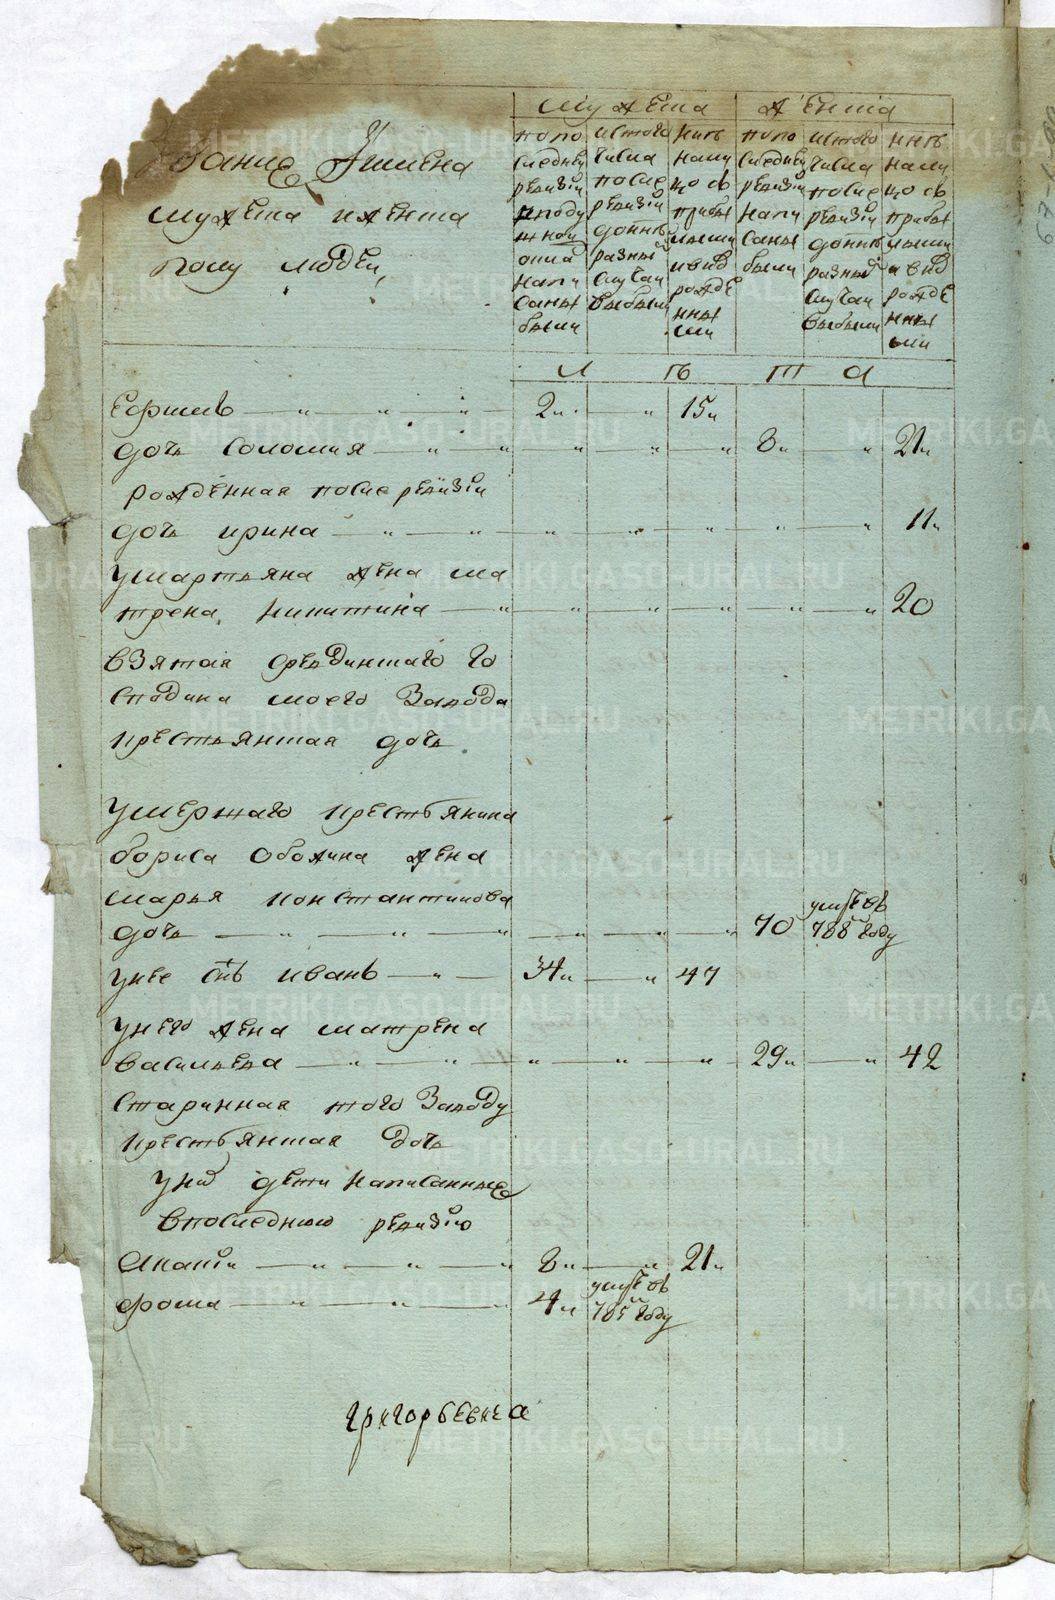 Звание Имяна
мужеска и женска
полу людей,
мужеска
женска
по по
следней
ревизіи
и по ду
шной
опла
напи
саны
были
ис того
числа
после
ревизіи
до нынѣ
разныи
случаи
выбыли
нынѣ
нали
цо съ
прибы
лыми
и вно
рожде
нны
ми
по по
следней
ревизіи
напи
саны
были
ис того
числа
после
ревизіи
до нынѣ
разныи
случаи
выбыли
нынѣ
нали
цо съ
прибы
лыми
и вно
рожде
нны
ми
л ѣ т а
Ефимъ 2 15
дочь Соломия 8 21
рожденная после ревизіи
дочь ирина 11
у мартьяна жена ма
трена никитина 20
взятая господина моего завода
крестьянская дочь
умершаго крестьянина
бориса оболина жена
марья константинова
дочь 70 умре въ 788 году
у нее снъ иванъ 34 47
у него жена матрена
васильева 29 42
старинная того заводу
крестьянская дочь
у них дети написанные
в последнюю ревизию
Ананіи 8 21
фома 4 умре въ 785 году
григорьевича